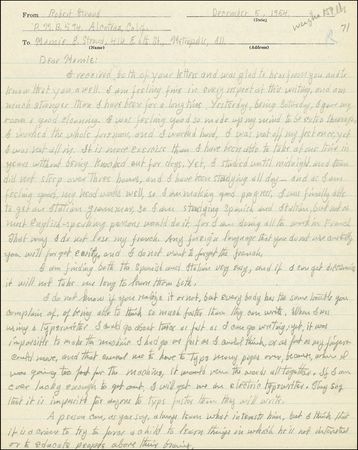 From Robert Stroud December 5, 1954.
(Date)
P.M.B. 594, Alcatraz, Calif.
To Mamie E. Stroud, 414 E. 6th St., Metropolis, Ill.
(Name) (Address)
Dear Mamie:
I received both of your letters and was glad to hear from you and to
know that you are well. I am feeling fine in every respect at this writing, and am
much stronger than I have been for a long time. Yesterday, being Saturday, I gave my
room a good cleaning. I was feeling good so made up my mind to be extra thorough.
I worked the whole forenoon, and I worked hard, I was not off my feet once, yet
I was not all in. It is more exercise than I have been able to take at one time in
years without being knocked out for days. Yet, I studied until midnight and then
did not sleep over three hours, and I have been studying all day – and as I am
feeling good, my head works well, so I am making good progress. I was finally able
to get an Italian grammar, so I am studying Spanish and Italian, but not as
most English-speaking persons would do it, for I am doing all the work in French.
That way I do not lose my French. Any foreign language that you do not use constantly
you will forget easily, and I do not want to forget the French.
I am finding both the Spanish and Italian very easy, and if I can get
it will not take me long to learn them both.
I do not know if you realize it or not, but every body has the same trouble you
complain of, of being able to think so much faster than they can write. When I was
using a typewriter I could go about twice as fast as I can go writing; yet, it was
impossible to make the machine go as fast as I could think, or as fast as my fingers
could move, and that caused me to have to type many pages over, because, when I
was going too fast for the machine, it would run the words all together. If I am
ever lucky enough to get out, I will get me an electric typewriter. They say
that it is impossible for anyone to type faster than they will write.
A person can, as you say, always learn what interests him, but I think that
it is a crime to try to force a child to learn things in which he is not interested
or to educate people above their brains.